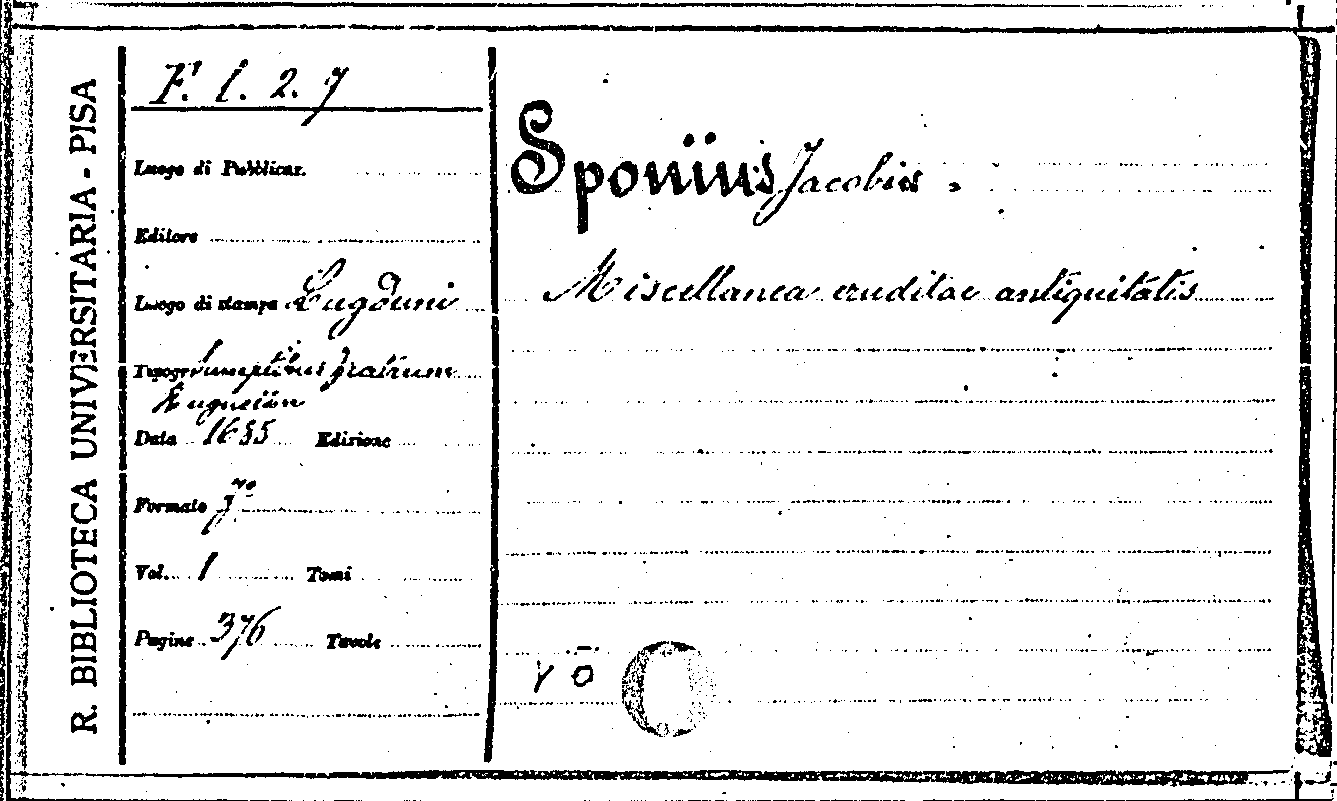 R. BIBLIOTECA UNIVERSITARIA - PISA
F. 1. 2. 7
Luogo di Pubblicaz.
Editore
Luogo di stampa Lugduni
Tipogr. sumptibus fratrum
Huguetan
Data 1685 Edizione
Formato
Vol. 1 Tomi
Pagine 376 Tavole
Sponius Jacobus.
Miscellanea eruditae antiquitatis